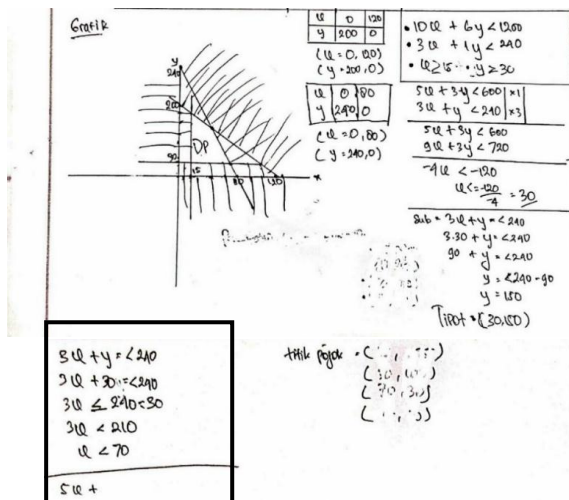 Grafik
y
240
200
DP
30
15
80
120
x
x 0 120
y 200 0
(x=0, 120)
(y=200, 0)
x 0 80
y 240 0
(x=0, 80)
(y=240, 0)
• 10x + 6y < 1200
• 3x + 1y < 240
• x ≥ 15 • y ≥ 30
5x + 3y < 600 | x1
3x + y < 240 | x3
5x + 3y < 600
9x + 3y < 720
-4x < -120
x <= -120/-4 = 30
Sub = 3x + y = < 240
3.30 + y = < 240
90 + y = < 240
y = < 240 - 90
y = 150
Tipot = (30,150)
3x + y = < 240
3x + 30 = < 240
3x ≤ 240 - 30
3x < 210
x < 70
5x +
titik pojok =
(70, 30)